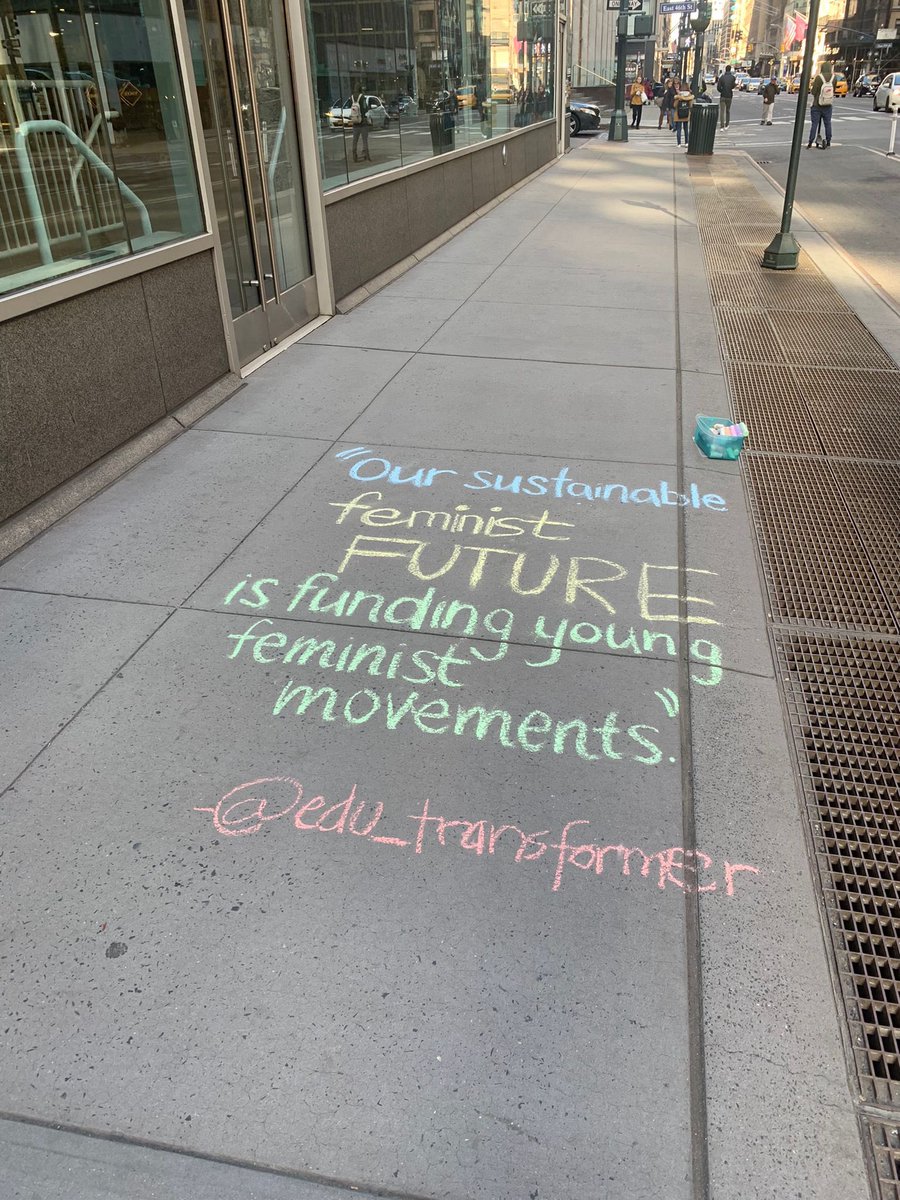 East 46th St
"Our sustainable
feminist
FUTURE
is funding young
feminist
movements."
-@edu_transformer